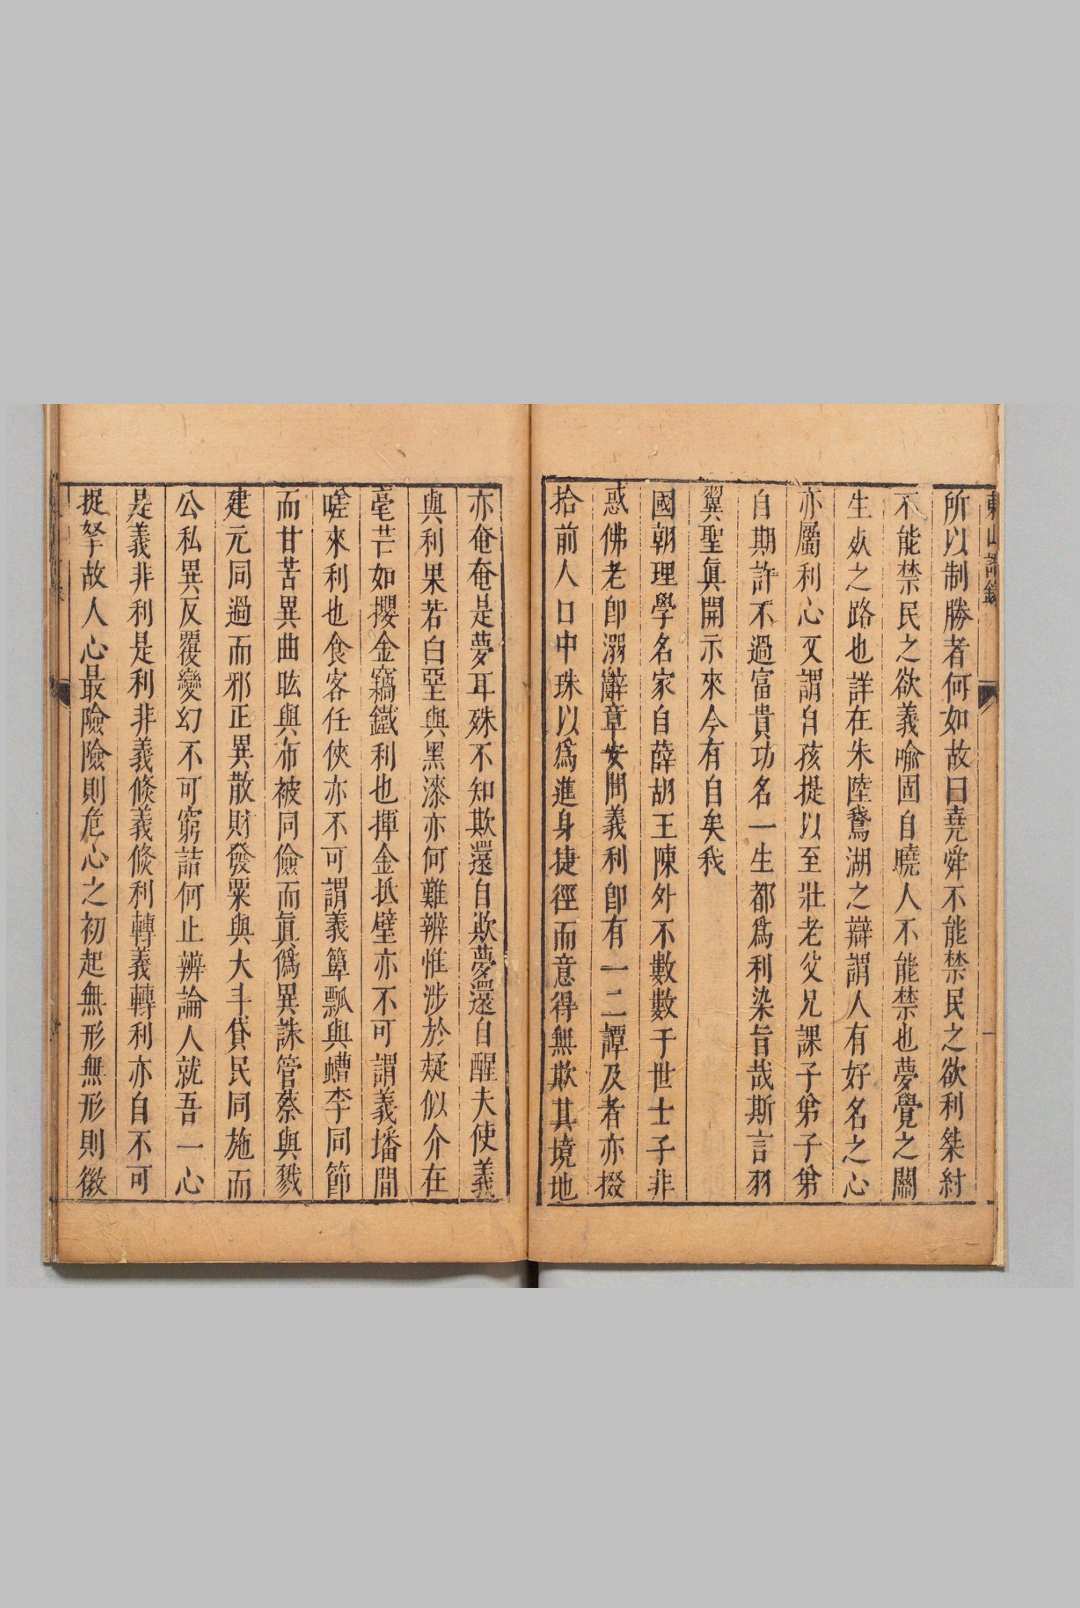 所以制勝者何如故曰堯舜不能禁民之欲利桀紂
不能禁民之欲義喻固自曉人不能禁也夢覺之關
生死之路也詳在朱陸鵞湖之辯謂人有好名之心
亦屬利心又謂自孩提以至壯老父兄課子弟子弟
自期許不過富貴功名一生都爲利染旨哉斯言羽
翼聖眞開示來今有自矣我
國朝理學名家自薛胡王陳外不數數于世士子非
惑佛老卽溺辭章安問義利卽有一二譚及者亦掇
拾前人口中珠以爲進身捷徑而意得無欺其境地
亦奄奄是夢耳殊不知欺還自欺夢還自醒夫使義
與利果若白堊與黑漆亦何難辨惟涉於疑似介在
毫芒如攫金竊鐵利也揮金抵壁亦不可謂義墦間
嗟來利也食客任俠亦不可謂義簞瓢與螬李同節
而甘苦異曲肱與布被同儉而眞僞異誅管蔡與戮
建元同過而邪正異散財發粟與大斗貸民同施而
公私異反覆變幻不可窮詰何止辨論人就吾一心
是義非利是利非義倐義倐利轉義轉利亦自不可
捉拏故人心最險險則危心之初起無形無形則微